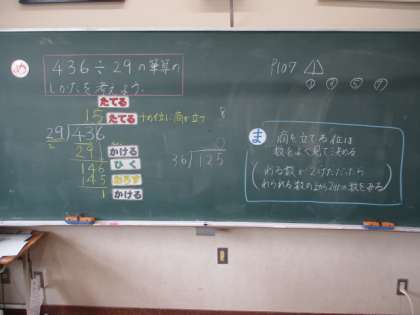 め
436÷29の筆算の
しかたを考えよう。
たてる
15 たてる 十の位に商が立つ
29)436
2
291 かける
146 ひく
145 おろす
1 かける
8
0
36)125
P107 △
① ③ ⑤ ⑦
ま 商を立てる位は
数をよく見て決める
(わる数が2けただったら
わられる数の上から2けたの数をみる)